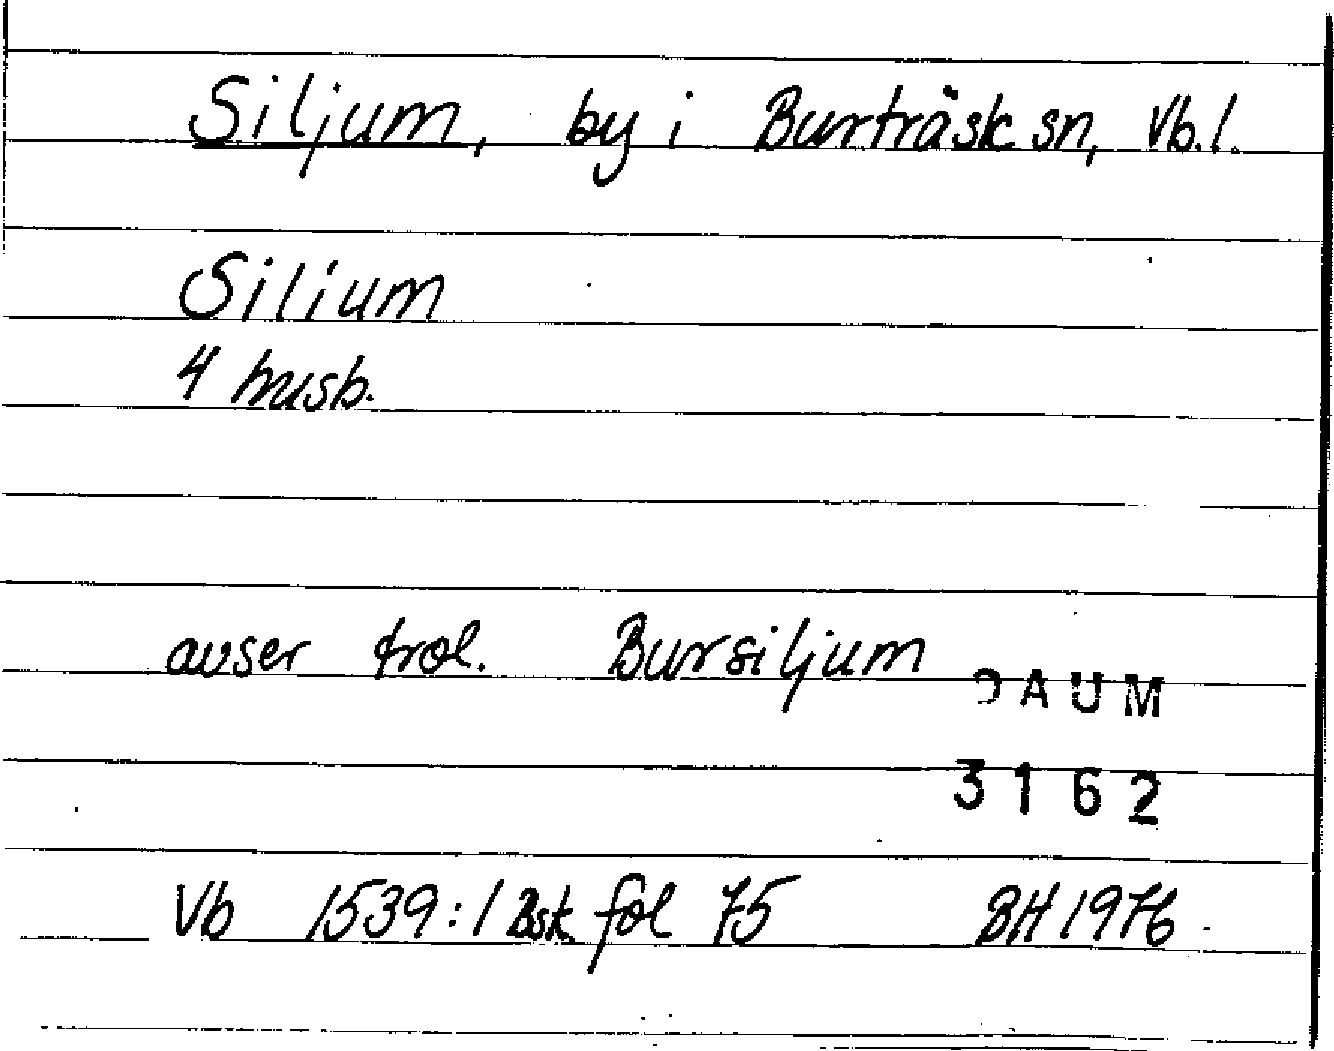 Siljum, by i Burträsk sn, Vb.l.
Silium
4 husb.
avser trol. Bursiljum
DAUM
3162
Vb 1539:1 Bsk. fol 75 BH 1976